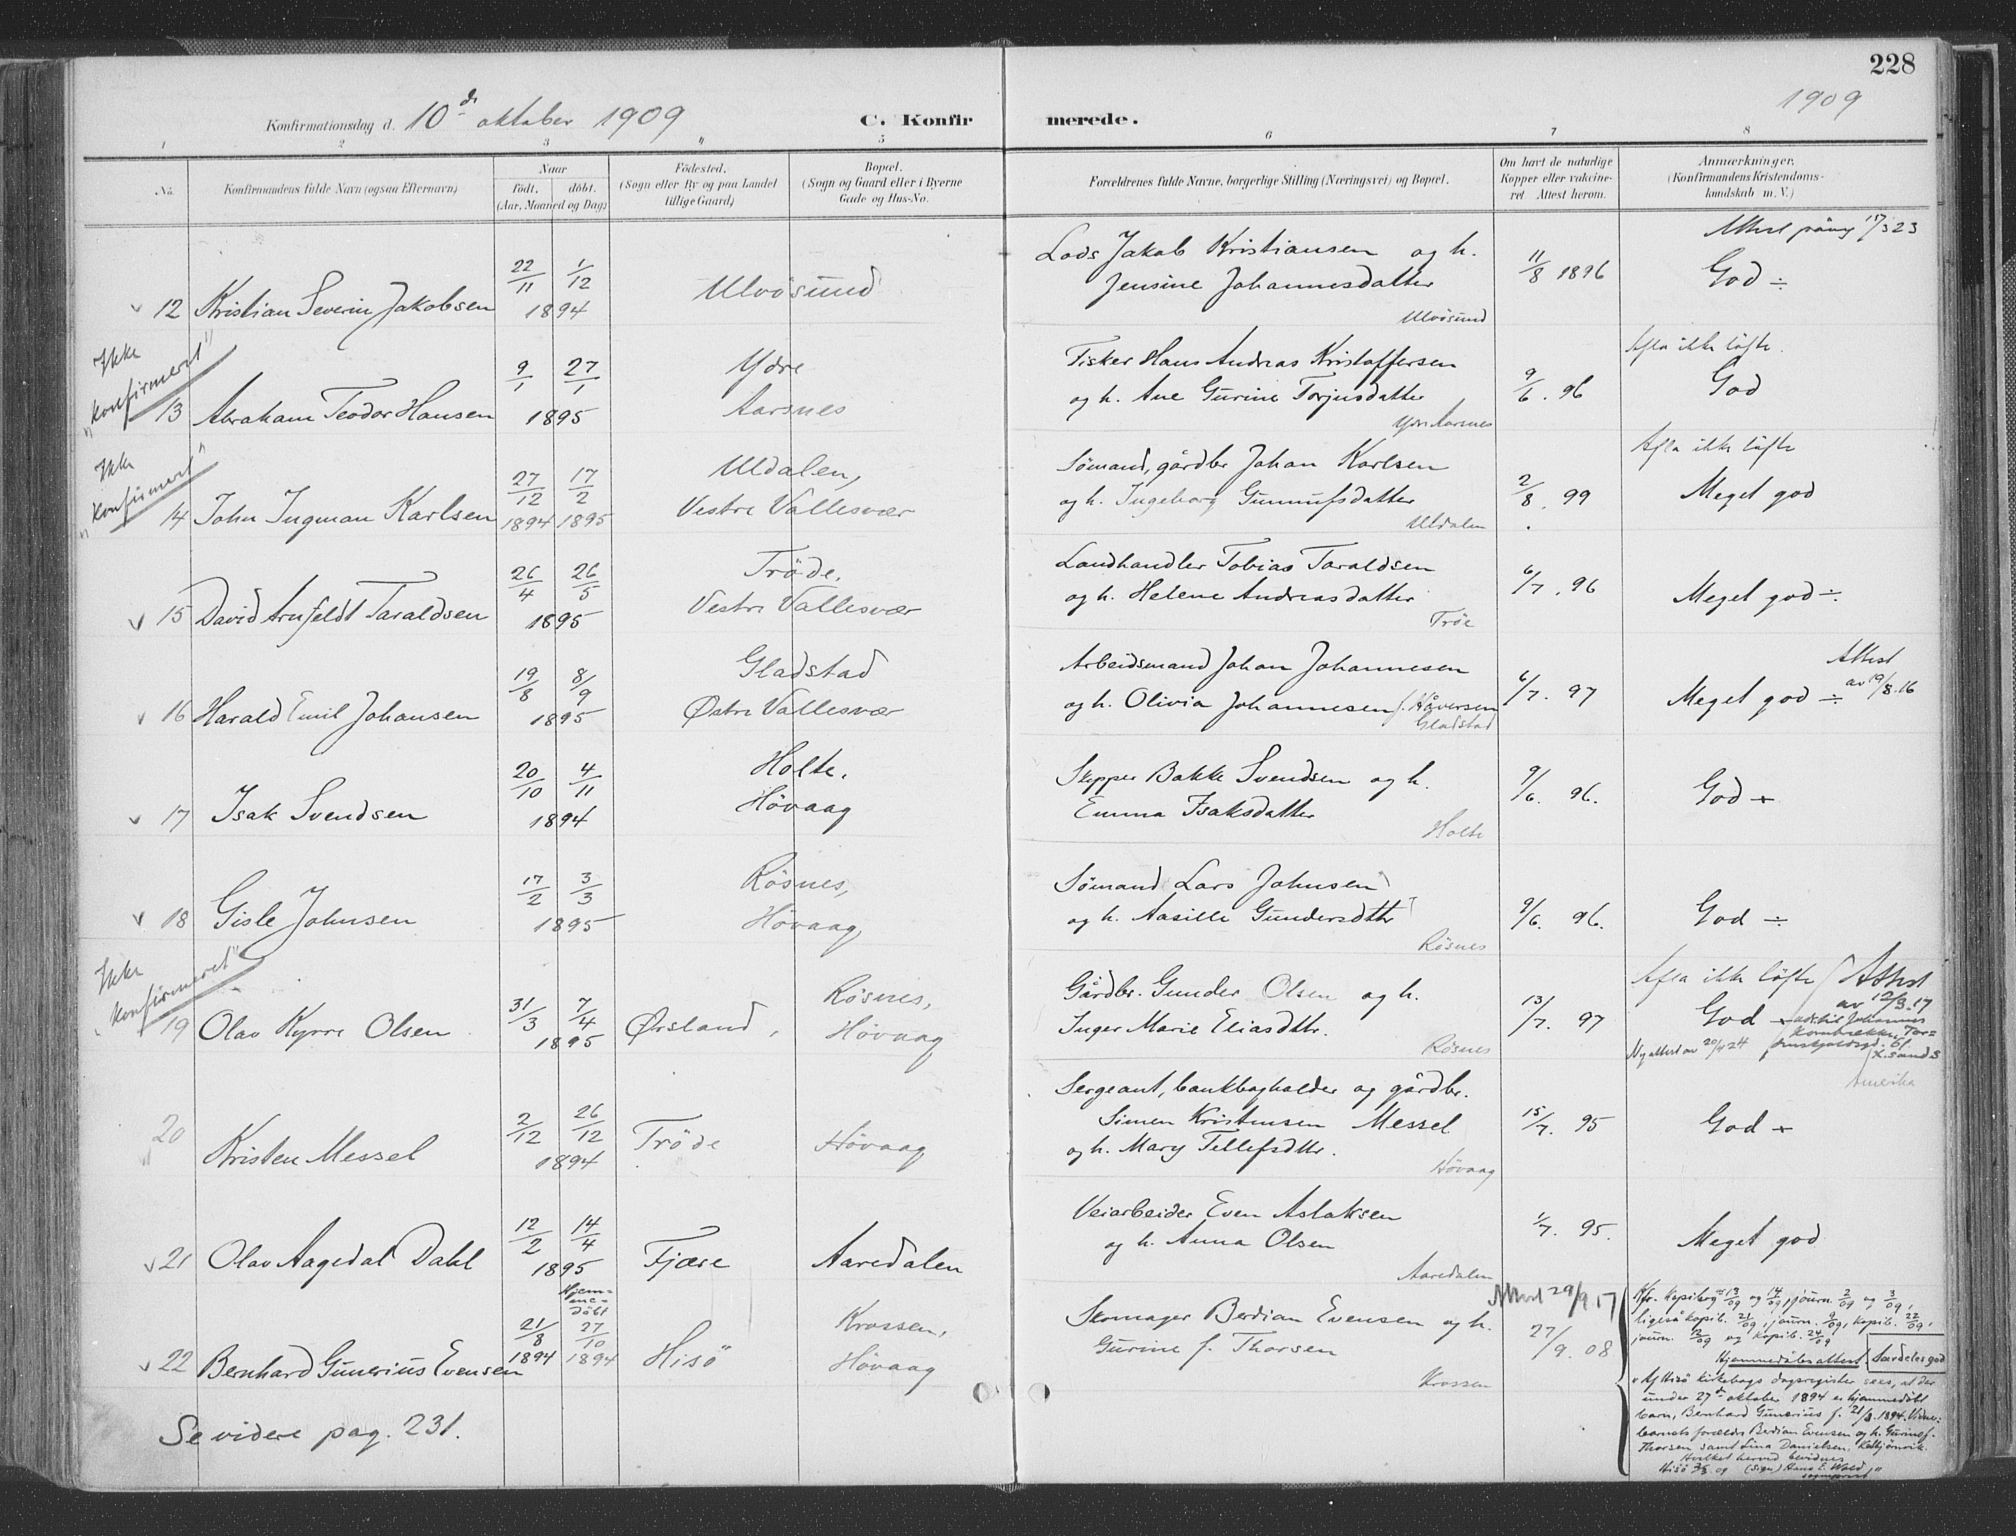 228
1909
Konfirmationsdag d. 10de oktober 1909
C. Konfirmerede.
1 2 3 4 5 6 7 8
No.
Konfirmandens fulde Navn (ogsaa Efternavn)
Naar
født. døbt.
(Aar, Maaned og Dag)
Födested.
(Sogn eller By og paa Landet
tillige Gaard)
Bopæl.
(Sogn og Gaard eller i Byerne
Gade og Hus-No.
Forældrenes fulde Navne, borgerlige Stilling (Næringsvei) og Bopæl.
Om havt de naturlige
Kopper eller vakcine-
ret Attest herom.
Anmærkninger.
(Konfirmandens Kristendoms-
kundskab m. V.)
12 Kristian Severin Jakobsen
22/11 1/12
1894
Ulvösund
Lods Jakob Kristiansen og h.
Jensine Johannesdatter
Ulvösund
11/8 1896
God ÷
"Ikke
konfirmeret"
13 Abraham Teodor Hansen
9/1 27/1
1895
Ydre
Aarsnes
Fisker Hans Andreas Kristoffersen
og h. Ane Gurine Torjusdatter
Ydre Aarsnes
9/6. 96
Afla ikke löfte.
God
"Ikke
konfirmeret"
14 John Ingman Karlsen
27/12 17/2
1894 1895
Uldalen,
Vestre Vallesvær
Sömand, gårdbr Johan Karlsen
og h. Ingeborg Gunnufsdatter
Uldalen
2/8. 99
Afla ikke löfte
Meget god
15 David Arnfeldt Taraldsen
26/4 26/5
1895
Tröde.
Vestre Vallesvær
Landhandler Tobias Taraldsen
og h. Helene Andreasdatter
Tröe
6/7. 96
Meget god ÷
16 Harald Emil Johansen
19/8 8/9
1895
Gladstad
Østre Vallesvær
Arbeidsmand Johan Johannesen
og h. Olivia Johannesen f. Håversen
Gladstad
6/7. 97
Meget god ÷
Attest
av 19/8.16
17 Isak Svendsen
20/10 4/11
1894
Holte.
Hövaag
Skipper Bakke Svendsen og h.
Emma Isaksdatter
Holte
9/6. 96.
God ÷
18 Gisle Johnsen
17/2 3/3
1895
Rösnes,
Hövaag
Sömand Lars Johnsen
og h. Aasille Gundersdttr
Rösnes
9/6. 96.
God ÷
"Ikke
konfirmeret"
19 Olav Kyrre Olsen
31/3 7/4
1895
Örsland,
Rösnes,
Hövaag
Gårdbr. Gunder Olsen og h.
Inger Marie Eliasdttr.
Rösnes
13/7. 97
Afla ikke löfte
Attest
av 12/3.17
God
Ny attest av 20/4 24
X.sand S
Amerika
20 Kristen Messel
2/12 26/12
1894
Tröde
Hövaag
Sergeant, bankbogholder og gårdbr.
Simen Kristensen Messel
og h. Mary Tellefsdttr.
Hövaag
15/7. 95
God ÷
21 Olav Aagedal Dahl
12/2 14/4
1895
Fjære
Aaredalen
Veiarbeider Even Aslaksen
og h. Anna Olsen
Aaredalen
1/7. 95.
Meget god
22 Bernhard Gunerius Evensen
Hjem-
me-
döbt
21/8 27/10
1894 1894
Hisö
Krossen,
Hövaag
Skomager Berdian Evensen og h.
Gurine f. Thorsen
Krossen
Attest 29/9 17
27/9. 08
Kfr. kopibog 13/09 og 14/09, journ. 2/09 og 3/09,
ligeså kopib. 21/09, journ. 9/09, kopib. 22/09,
journ. 12/09 og kopib. 24/09
Hjemmedåbsattest. Særdeles god
"Af Hisö kirkebogs dagsregister sees, at der
under 27de oktober 1894 er hjemmedöbt
barn, Bernhard Gunerius f. 21/8.1894.
barnets forældre Berdian Evensen og h. Gurine f.
Thorsen samt Lina Danielsen,
Hvilket herved bevidnes
Hisö (sign) Hans E. Wold
sogneprest"
Se videre pag. 231.